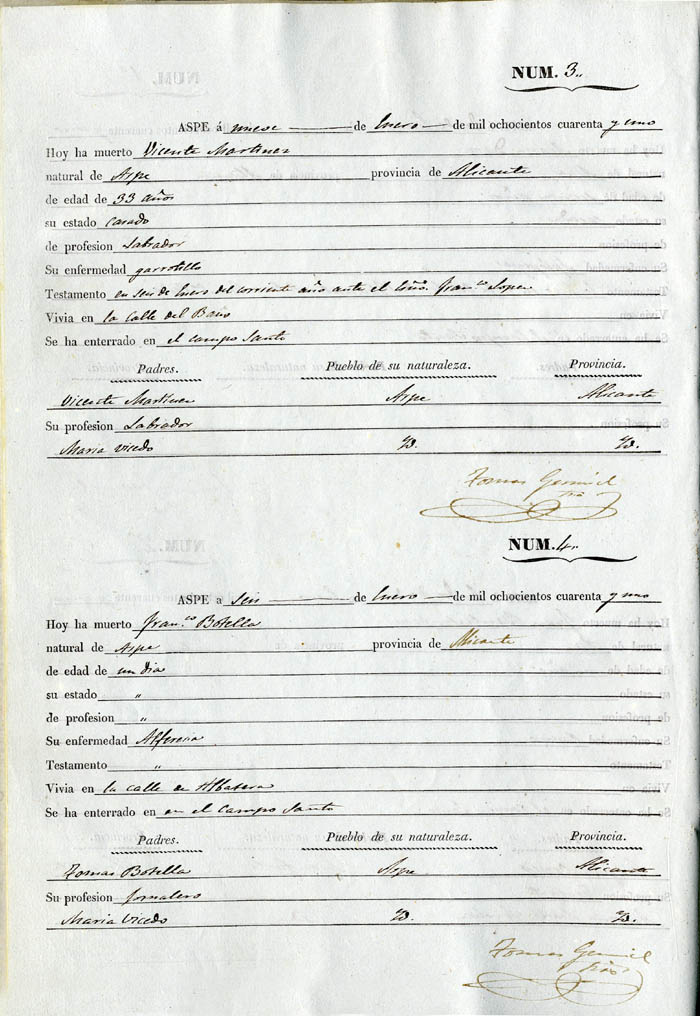 NUM. 3.
ASPE á nueve de Enero de mil ochocientos cuarenta y uno
Hoy ha muerto Vicente Martinez
natural de Aspe provincia de Alicante
de edad de 33 años
su estado casado
de profesion Labrador
Su enfermedad garrotillo
Testamento en seis de Enero del corriente año ante el Franco
Vivia en la Calle del Baño
Se ha enterrado en el campo Santo
Padres. Pueblo de su naturaleza. Provincia.
Vicente Martinez Aspe Alicante
Su profesion Labrador
Maria Vicedo Yd. Yd.
Tomas
NUM. 4.
ASPE a seis de Enero de mil ochocientos cuarenta y uno
Hoy ha muerto Franco Botella
natural de Aspe provincia de Alicante
de edad de un dia
su estado "
de profesion "
Su enfermedad Alferecia
Testamento "
Vivia en la calle de Albatera
Se ha enterrado en en el Campo Santo
Padres. Pueblo de su naturaleza. Provincia.
Tomas Botella Aspe Alicante
Su profesion jornalero
Maria Vicedo Yd. Yd.
Tomas